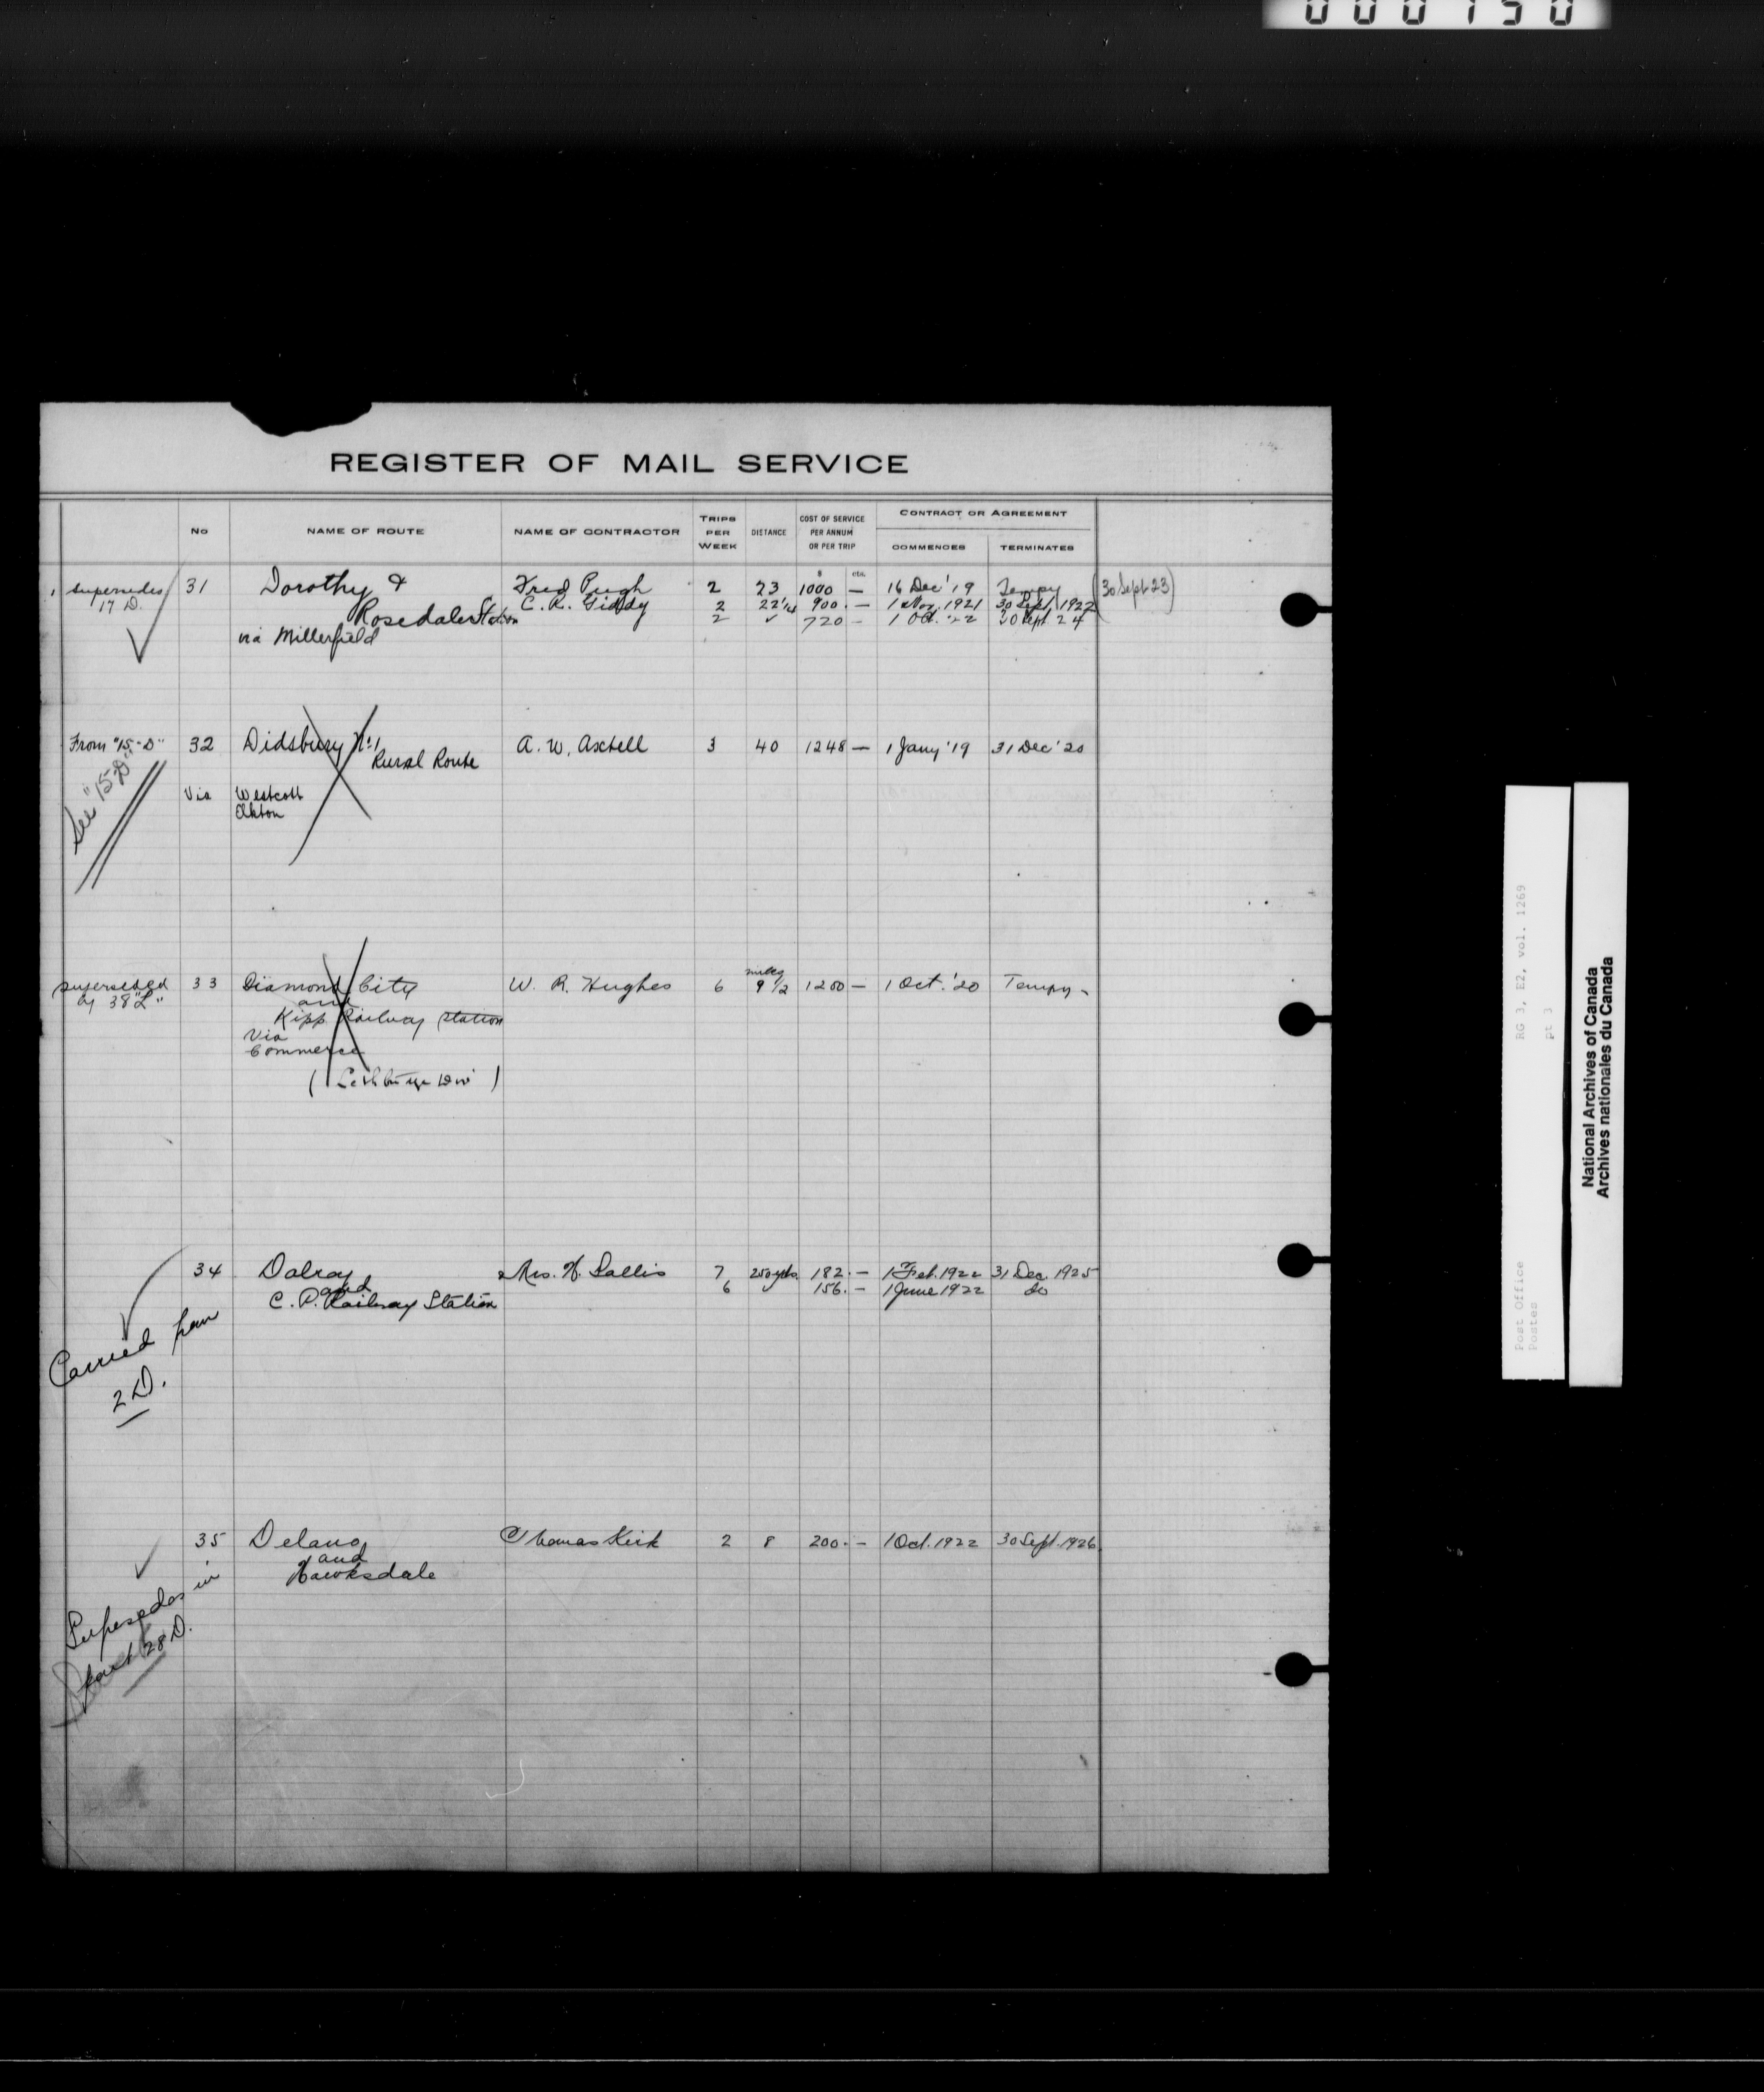 000150
REGISTER OF MAIL SERVICE
No NAME OF ROUTE NAME OF CONTRACTOR TRIPS PER WEEK DISTANCE COST OF SERVICE PER ANNUM OR PER TRIP CONTRACT OR AGREEMENT
COMMENCES TERMINATES
$ cts.
supersedes 31 Dorothy & Fred Pugh 2 23 1000 — 16 Dec '19 Tempy (30 Sept 23)
17 D. Rosedale Station C. R. Giddy 2 22 900. — 1 Nov. 1921 30 Sept. 1922
2 ✓ 720 — 1 Oct. '22 Sept 24
via Millerfield
From "15-D" 32 Didsbury No 1 A. W. Axtell 3 40 1248 — 1 Jany '19 31 Dec '20
Rural Route
See "15-D"
Via Westcott
Elkton
superseded 33 Diamond City W. R. Hughes 6 miles 9 1/2 1200 — 1 Oct. '20 Tempy -
by 38 "L" and
Kipp Railway Station
Via
Commerce
(Lethbridge Div)
34 Dalroy Mrs. H. Sallis 7 250 yds. 182. — 1 Feb. 1922 31 Dec. 1925
and 6 156. — 1 June 1922 do
C. P. Railway Station
Carried from
2 D.
35 Delano Thomas Kirk 2 8 200. — 1 Oct. 1922 30 Sept. 1926
and
Hawksdale
Supersedes in
part 28 D.
RG 3, E2, vol. 1269
pt 3
Post Office
Postes
National Archives of Canada
Archives nationales du Canada